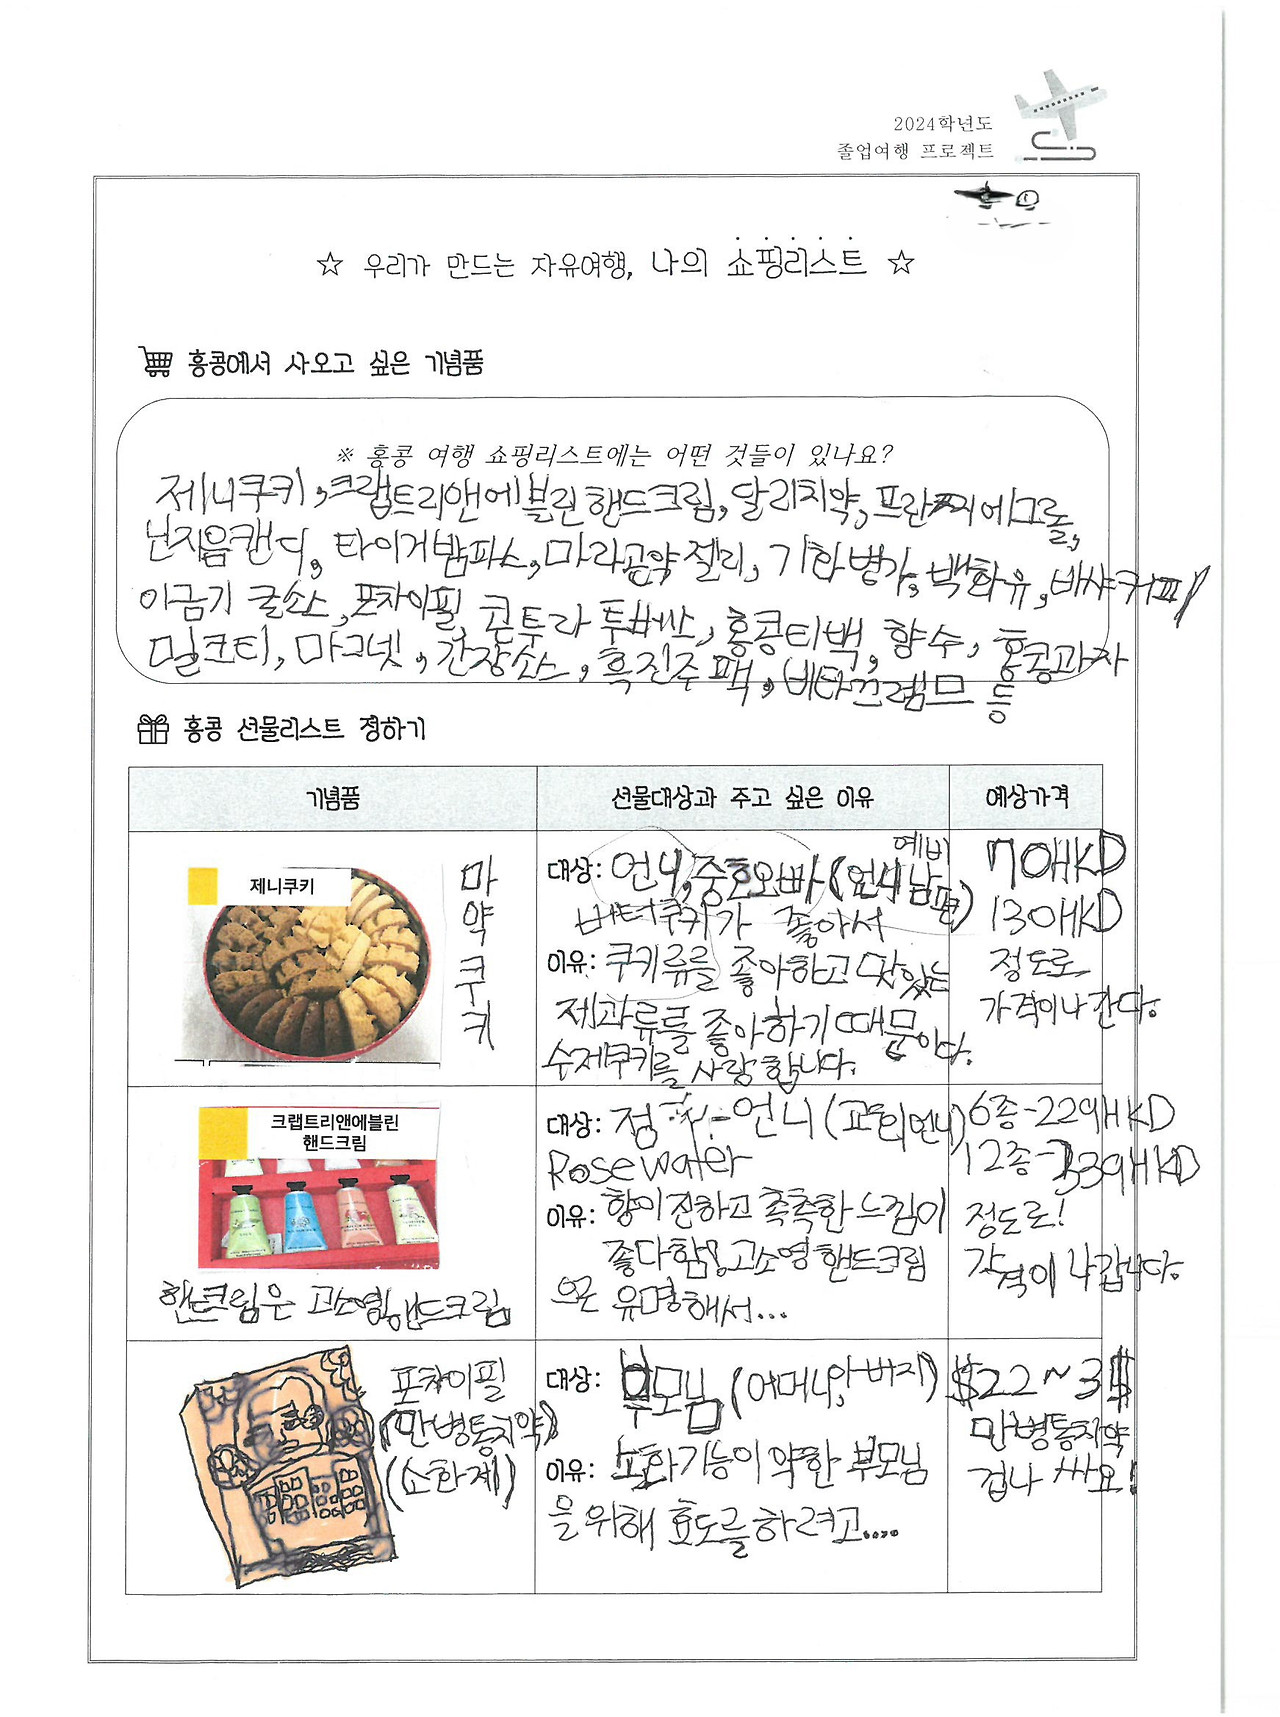 2024학년도
졸업여행 프로젝트
☆ 우리가 만드는 자유여행, 나의 쇼핑리스트 ☆
홍콩에서 사오고 싶은 기념품
※ 홍콩 여행 쇼핑리스트에는 어떤 것들이 있나요?
제니쿠키, 크랩트리앤에블린 핸드크림, 달리치약, 프란찌에그롤,
넌지음캔디, 타이거밤파스, 마라곤약젤리, 기화병가, 백화유, 바샤커피
이금기 굴소스, 포차이필, 콘투라 투바쓰, 홍콩티백, 향수, 홍콩과자
밀크티, 마그넷, 간장소스, 흑진주팩, 비타끄렘므 등
홍콩 선물리스트 정하기
기념품 선물대상과 주고 싶은 이유 예상가격
제니쿠키
마약쿠키
대상: 언니, 중호오빠(언니 예비 남편)
버터쿠키가 좋아서
이유: 쿠키류를 좋아하고 맛있는
제과류를 좋아하기 때문이다.
수제쿠키를 사랑합니다.
70HKD
130HKD
정도로
가격이나 간다.
크랩트리앤에블린
핸드크림
핸드크림은 고소영핸드크림
대상: 정 언니(교회언니)
Rose water
이유: 향이 진하고 촉촉한 느낌이
좋다함!, 고소영핸드크림
으로 유명해서...
6종-229HKD
12종-339HKD
정도로!
가격이 나갑니다.
포차이필
(만병통치약)
(소화제)
대상: 부모님 (어머니, 아버지)
이유: 소화기능이 약한 부모님
을 위해 효도를 하려고....
$22~3$
만병통치약
겁나 싸요!